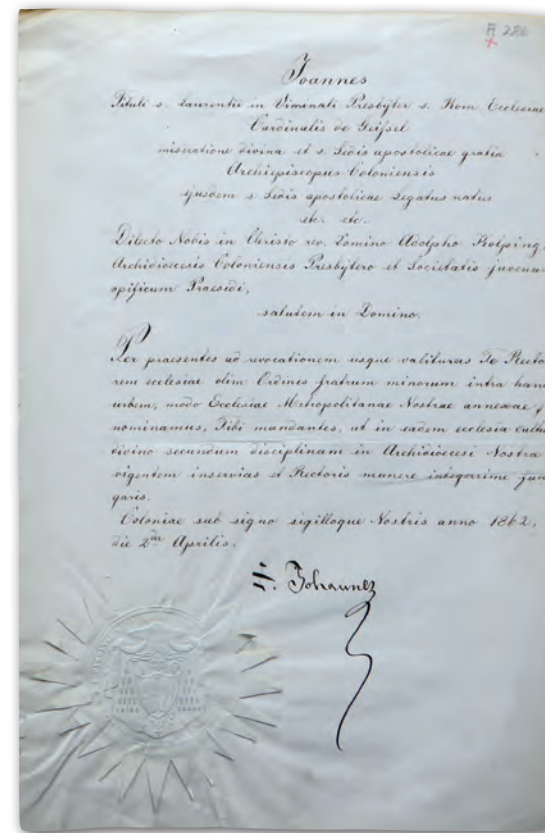 A 226
Joannes
Tituli s. Laurentii in Viminali Presbyter s. Rom. Ecclesiae
Cardinalis de Geissel
miseratione divina et s. Sedis apostolicae gratia
Archiepiscopus Coloniensis
ejusdem s. Sedis apostolicae Legatus natus
etc. etc.
Dilecto Nobis in Christo rev. Domino Adolpho Kolping
Archidioecesis Coloniensis Presbytero et Societatis juvenum
opificum Praesidi,
salutem in Domino.
Per praesentes ad revocationem usque valituras Te Recto-
rem ecclesiae olim Ordines fratrum minorum intra hanc
urbem, modo Ecclesiae Metropolitanae Nostrae annexae
nominamus, Tibi mandantes, ut in eadem ecclesia cultu
divino secundum disciplinam in Archidioecesi Nostra
vigentem inservias et Rectoris munere integerrime fun-
garis.
Coloniae sub signo sigilloque Nostris anno 1862,
die 2da Aprilis.
Johannes